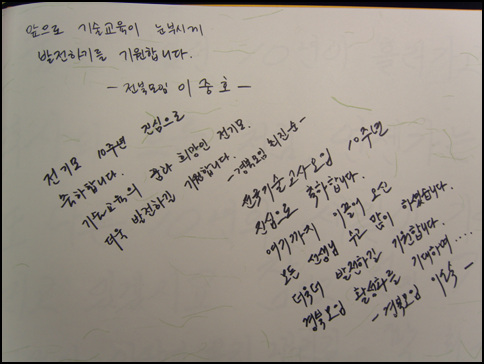 앞으로 기술교육이 눈부시게
발전하기를 기원합니다.
- 전북모임 이중호 -
전기모 10주년 진심으로
축하합니다.
기술교육의 꿈과 희망인 전기모.
더욱 발전하길 기원합니다.
- 경북모임 최진순 -
전국기술교사모임 10주년
진심으로 축하합니다.
여기까지 이끌어 오신
모든 선생님 수고 많이 하셨습니다.
더욱더 발전하길 기원합니다.
경북모임 활성화를 기대하며....
- 경북모임 이 숙 -